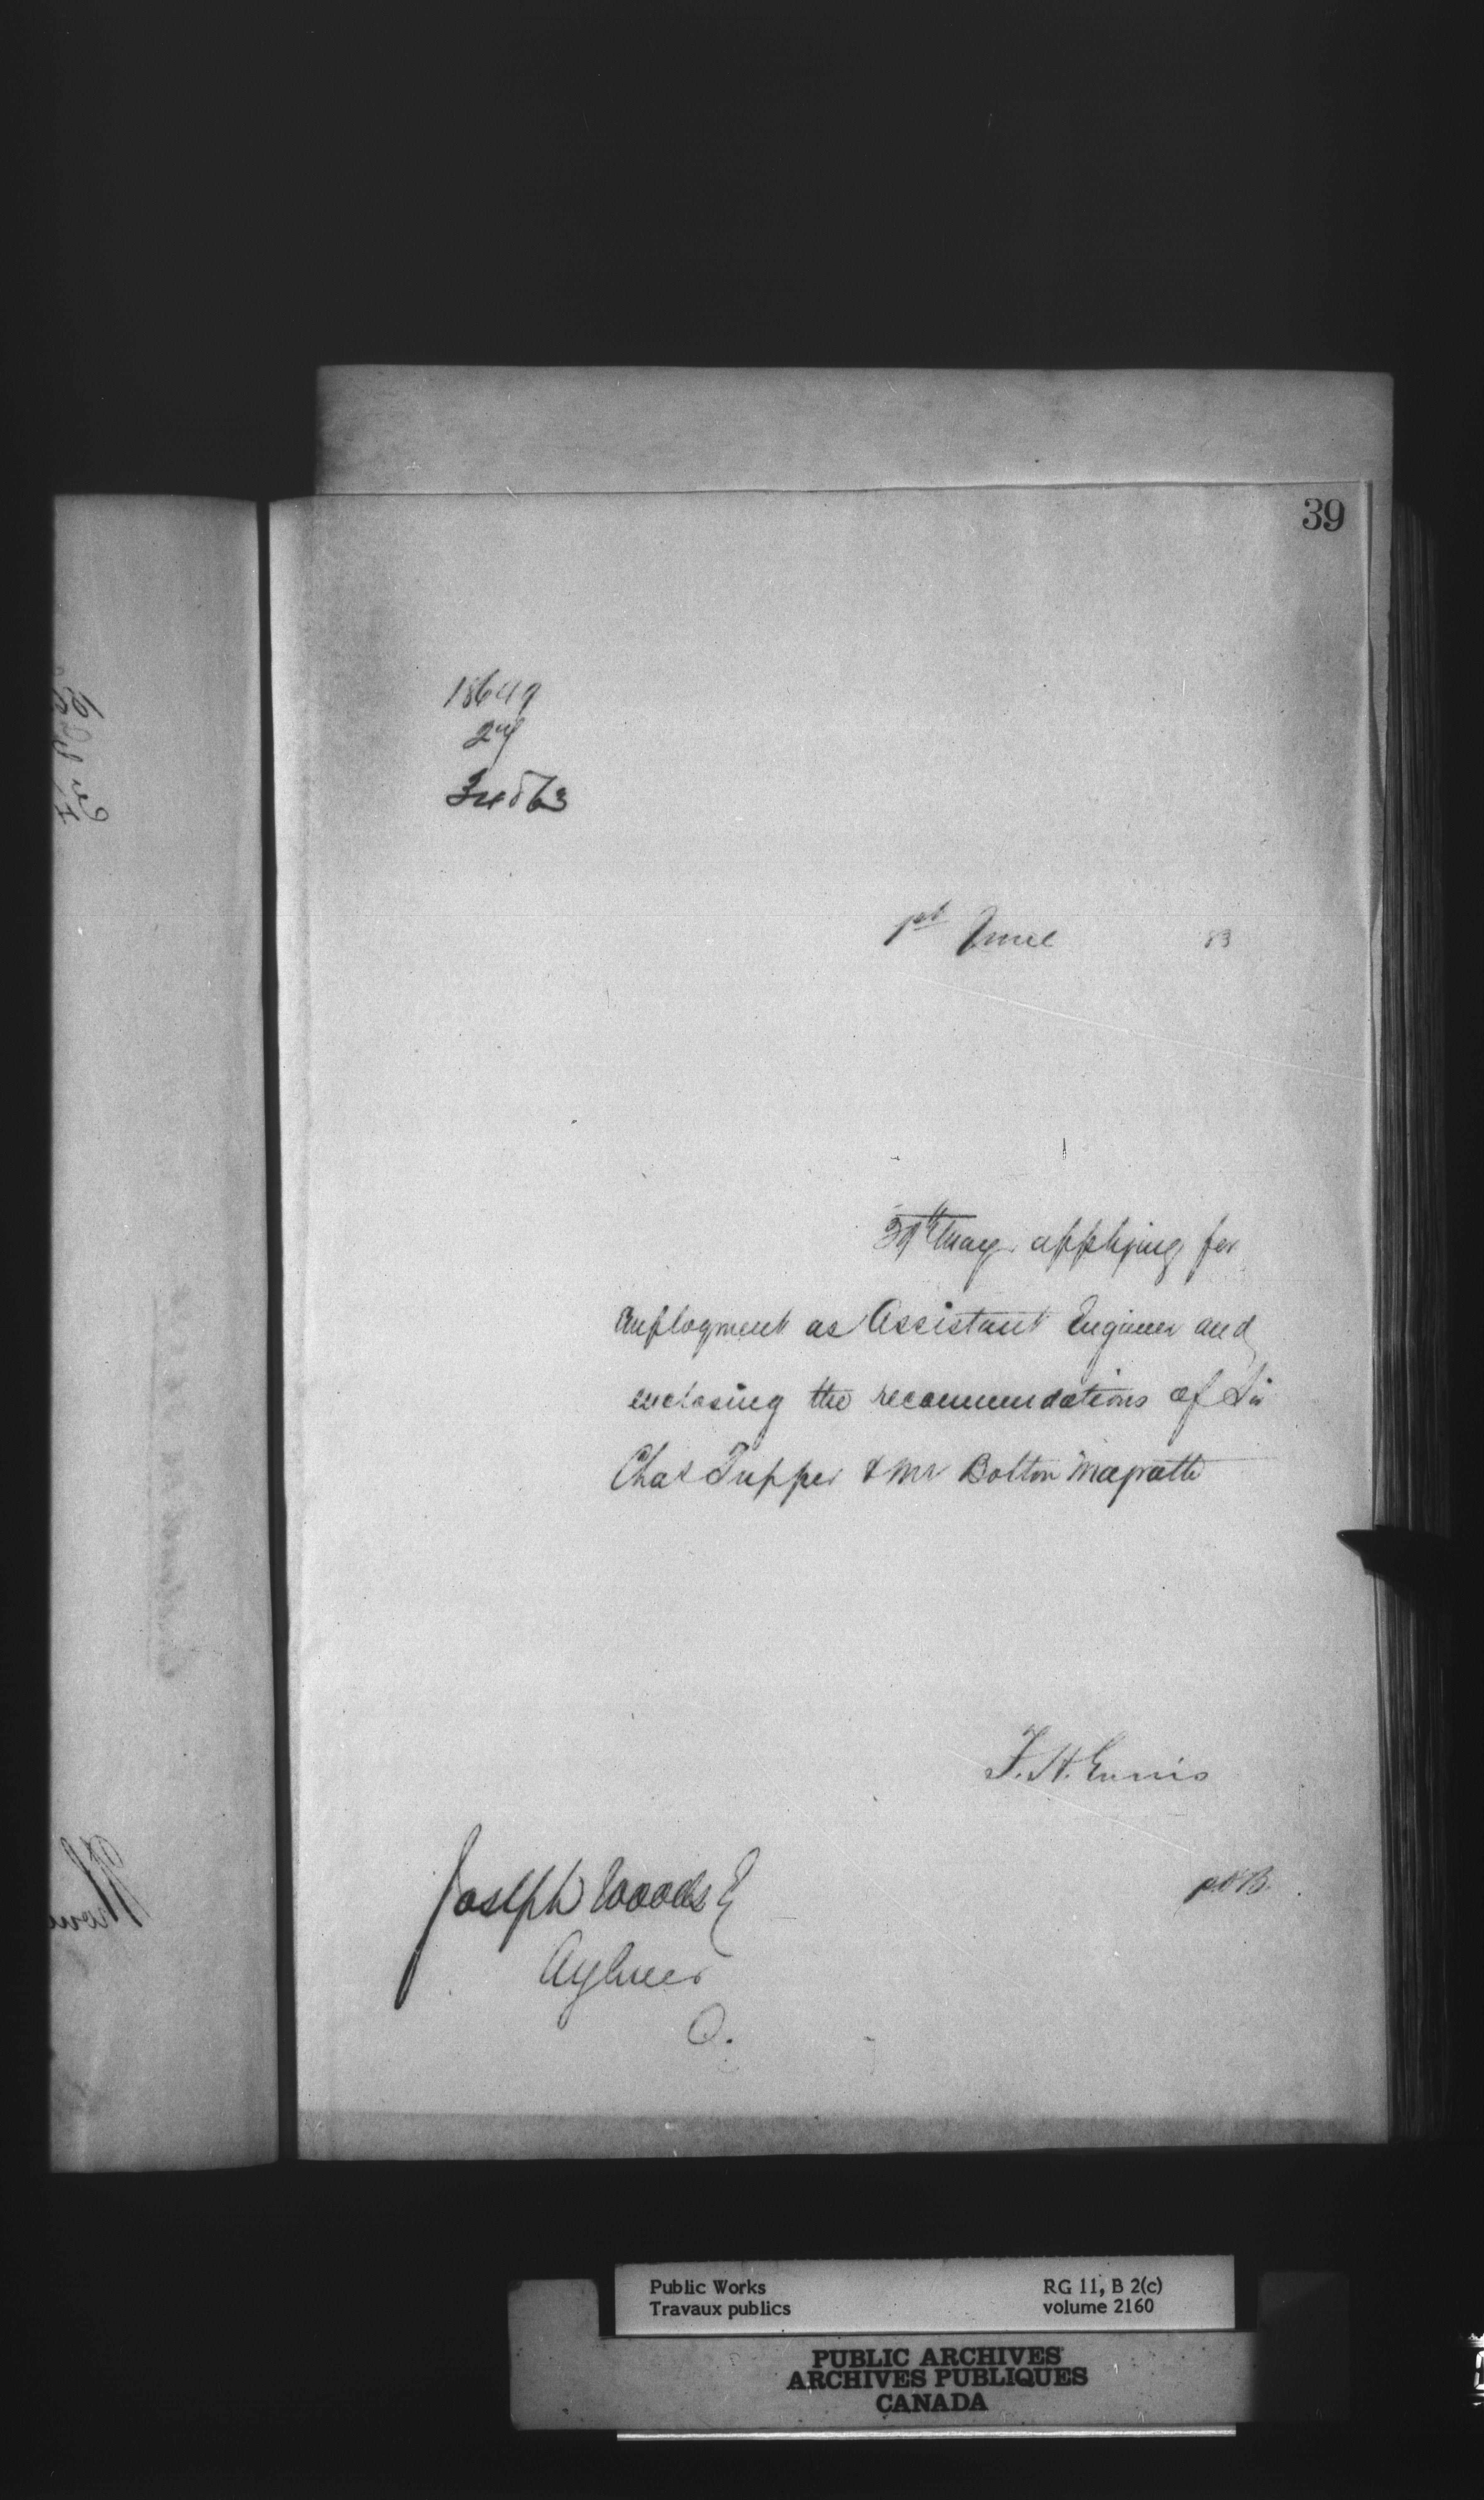 39
18649
34563
1st June 83
30th May applying for
Employment as Assistant Engineer and
enclosing the recommendations of Sir
Chas Tupper & Mr Bolton Magrath
F. H. Ennis
Joseph Woods E
Aylmer
Q.
Public Works RG 11, B 2(c)
Travaux publics volume 2160
PUBLIC ARCHIVES
ARCHIVES PUBLIQUES
CANADA